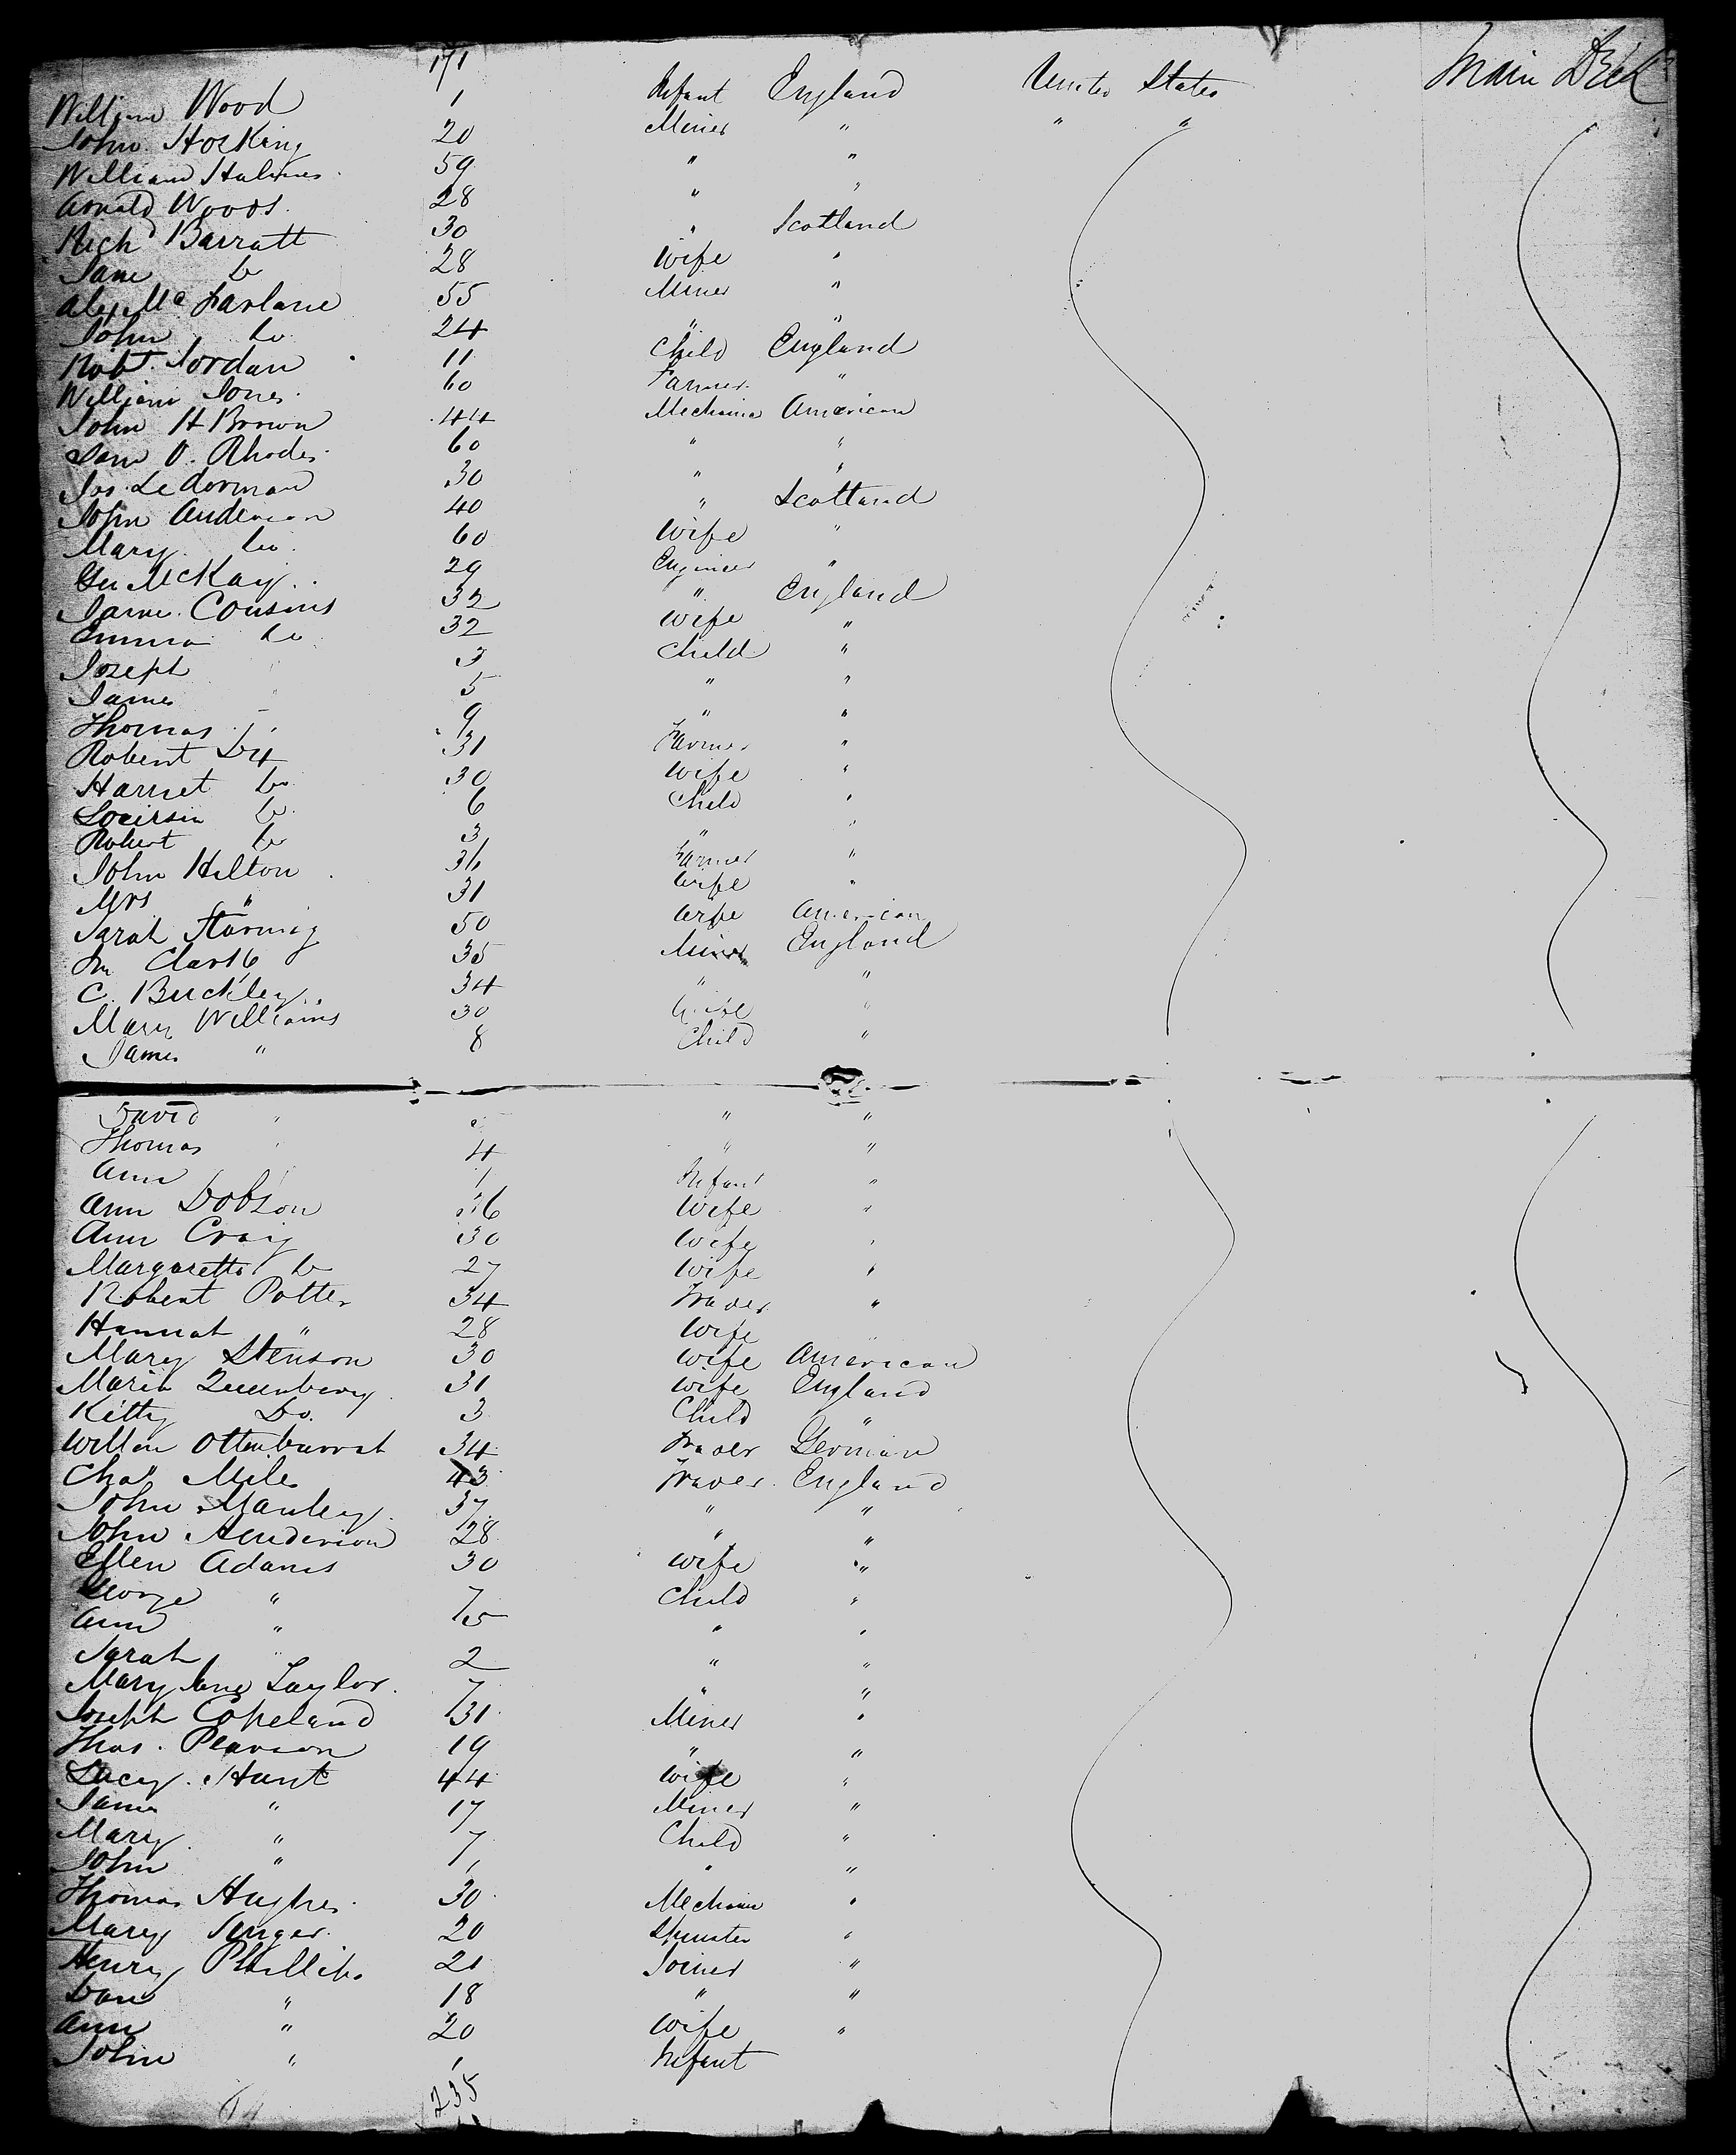 171
Main Deck
William Wood 1 Infant England United States
John Hosking 20 Miner " " "
William Holmes 59 " "
Arnold Woods 28 " "
Rich Barratt 30 " Scotland
Jane Do 28 Wife "
Alex Mc Farlane 55 Miner "
John Do 24 " "
Robt Jordan 11 Child England
William Jones 60 Farmer "
John H Brown 44 Mechanic American
Sam O. Rhodes 60 " "
Jos. Lederman 30 " "
John Anderson 40 " Scotland
Mary Do 60 Wife "
Geo McKay 29 Engineer "
Jame Cousins 32 " England
Emma Do 32 Wife "
Joseph " 3 Child "
James " 5 " "
Thomas " 9 " "
Robert 31 Farmer "
Harriet Do 30 Wife "
Do 6 Child "
Robert Do 3 " "
John Hilton 36 Farmer "
Mrs " 31 Wife "
Sarah 50 Wife American
Jn Clark 35 Miner England
C. Buckley 34 " "
Mary Williams 30 Wife "
James " 8 Child "
David " " "
Thomas " 4 " "
Ann 1 Infant "
Ann Dobson 36 Wife "
Ann Craig 30 Wife "
Margarette Do 27 Wife "
Robert Potter 34 Trader "
Hannah " 28 Wife "
Mary Stenson 30 Wife American
Maria Queenbery 31 Wife England
Kitty Do. 3 Child "
34 Trader German
Chas Miles 43 Trader England
John Manley 37 " "
John Henderson 28 " "
Ellen Adams 30 Wife "
George " 7 Child "
Ann " 5 " "
Sarah " 2 " "
Mary Jane Taylor 7 " "
Joseph Copeland 31 Miner "
Thos. Pearson 19 " "
Lucy Hunt 44 Wife "
James " 17 Miner "
Mary " 7 Child "
John " 1 " "
Thomas Hughes 30 Mechanic "
Mary Singer 20 Spinster "
Henry Phillips 21 Joiner "
Dan " 18 " "
Ann " 20 Wife "
John " 1 Infant
64 235